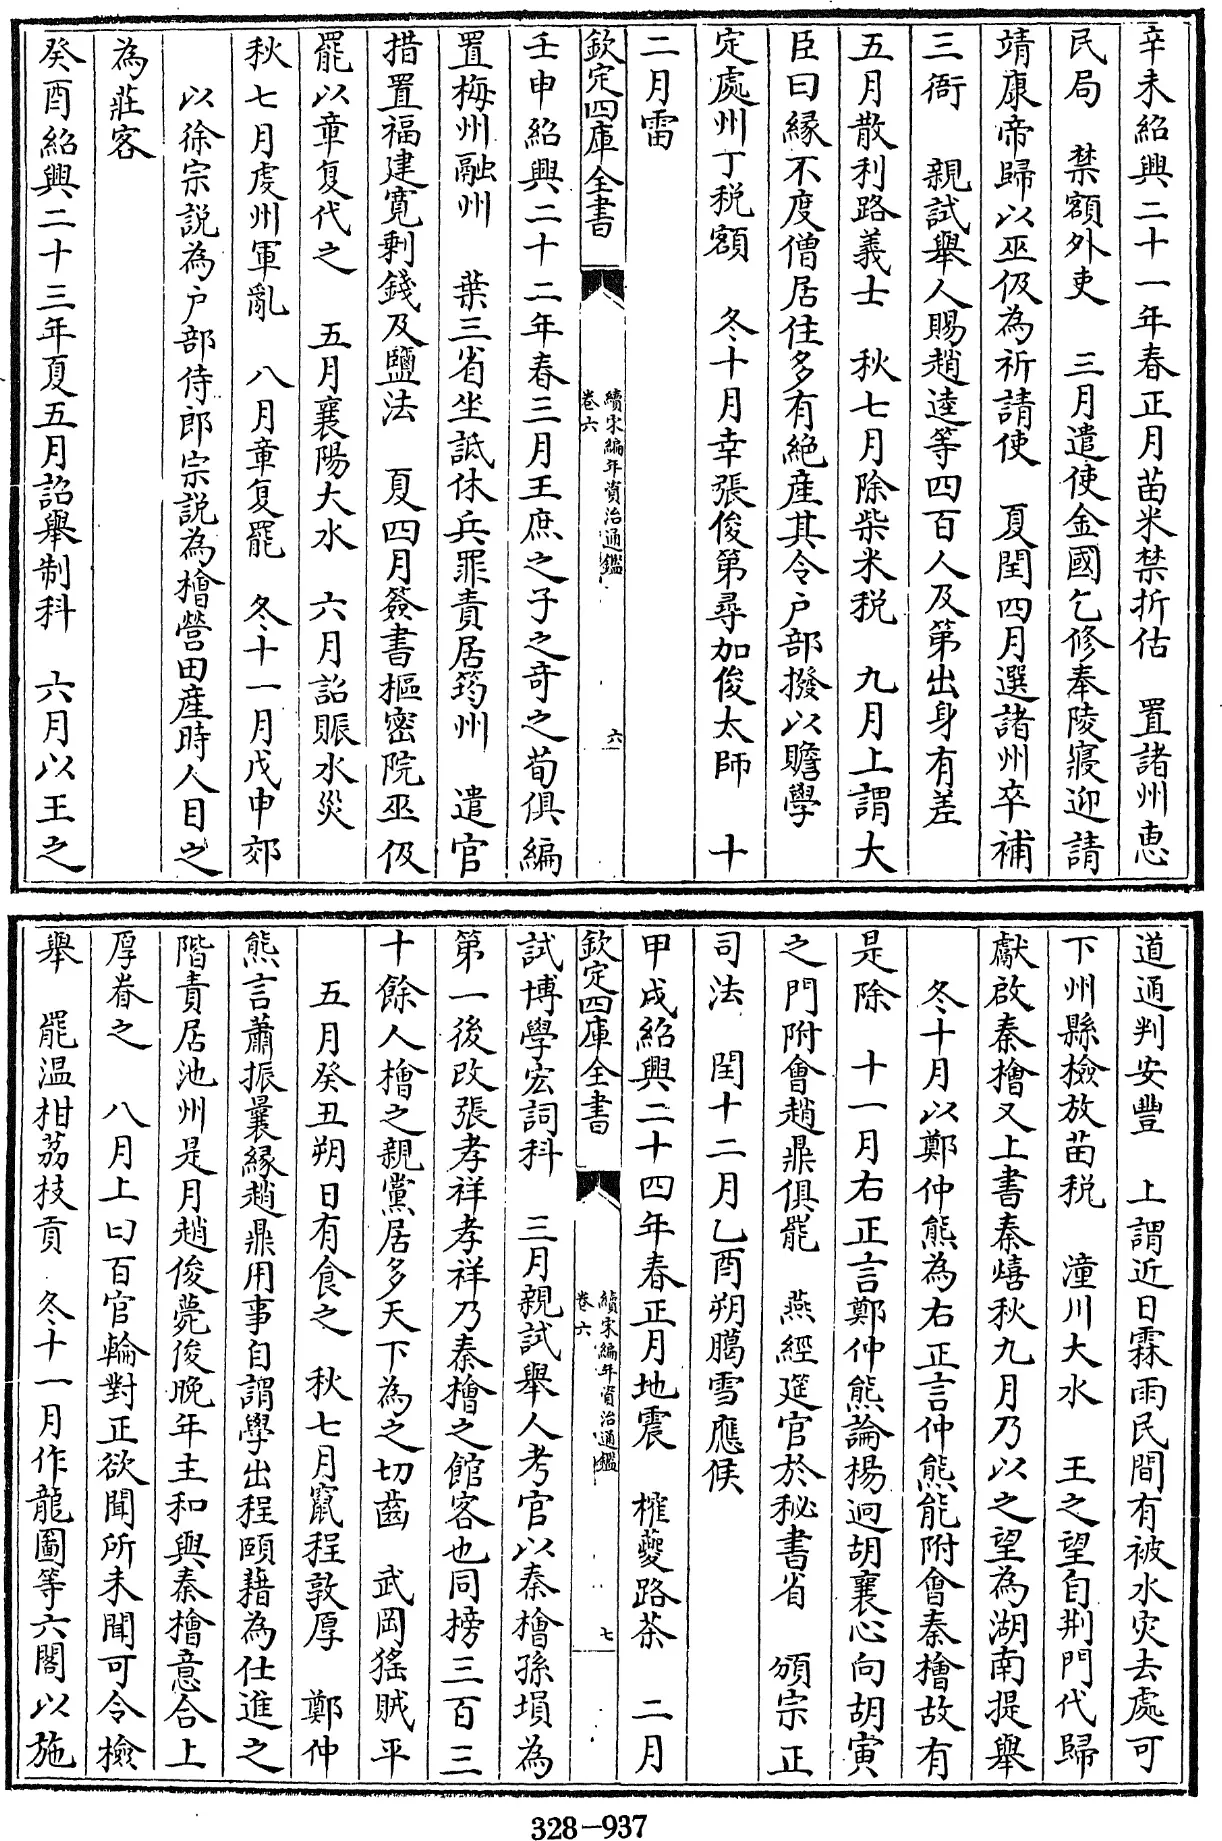 辛未紹興二十一年春正月苗米禁折估　置諸州惠
民局　禁額外吏　三月遣使金國乞修奉陵寢迎請
靖康帝歸以巫伋為祈請使　夏閏四月選諸州卒補
三衙　親試舉人賜趙逵等四百人及第出身有差
五月散利路義士　秋七月除柴米税　九月上謂大
臣曰縁不度僧居住多有絶産其令户部撥以贍學
定處州丁税額　冬十月幸張俊第尋加俊太師　十
二月雷
欽定四庫全書
續宋編年資治通鑑
卷六
六
壬申紹興二十二年春三月王庶之子之奇之荀俱編
置梅州融州　葉三省坐詆休兵罪責居筠州　遣官
措置福建寛剩錢及鹽法　夏四月簽書樞密院巫伋
罷以章复代之　五月襄陽大水　六月詔賑水災
秋七月虔州軍亂　八月章复罷　冬十一月戊申郊
以徐宗説為户部侍郎宗説為檜營田産時人目之
為莊客
癸酉紹興二十三年夏五月詔舉制科　六月以王之
道通判安豐　上謂近日霖雨民間有被水灾去處可
下州縣檢放苗税　潼川大水　王之望自荆門代歸
獻啟秦檜又上書秦熺秋九月乃以之望為湖南提舉
冬十月以鄭仲熊為右正言仲熊能附會秦檜故有
是除　十一月右正言鄭仲熊論楊迥胡襄心向胡寅
之門附會趙鼎俱罷　燕經筵官於秘書省　頒宗正
司法　閏十二月乙酉朔臈雪應候
甲戌紹興二十四年春正月地震　榷夔路茶　二月
欽定四庫全書
續宋編年資治通鑑
卷六
七
試博學宏詞科　三月親試舉人考官以秦檜孫塤為
第一後改張孝祥孝祥乃秦檜之館客也同榜三百三
十餘人檜之親黨居多天下為之切齒　武岡猺賊平
五月癸丑朔日有食之　秋七月竄程敦厚　鄭仲
熊言蕭振曩縁趙鼎用事自謂學出程頤藉為仕進之
階責居池州是月趙俊薨俊晚年主和與秦檜意合上
厚眷之　八月上曰百官輪對正欲聞所未聞可令檢
舉　罷温柑荔枝貢　冬十一月作龍圖等六閣以施
328－937